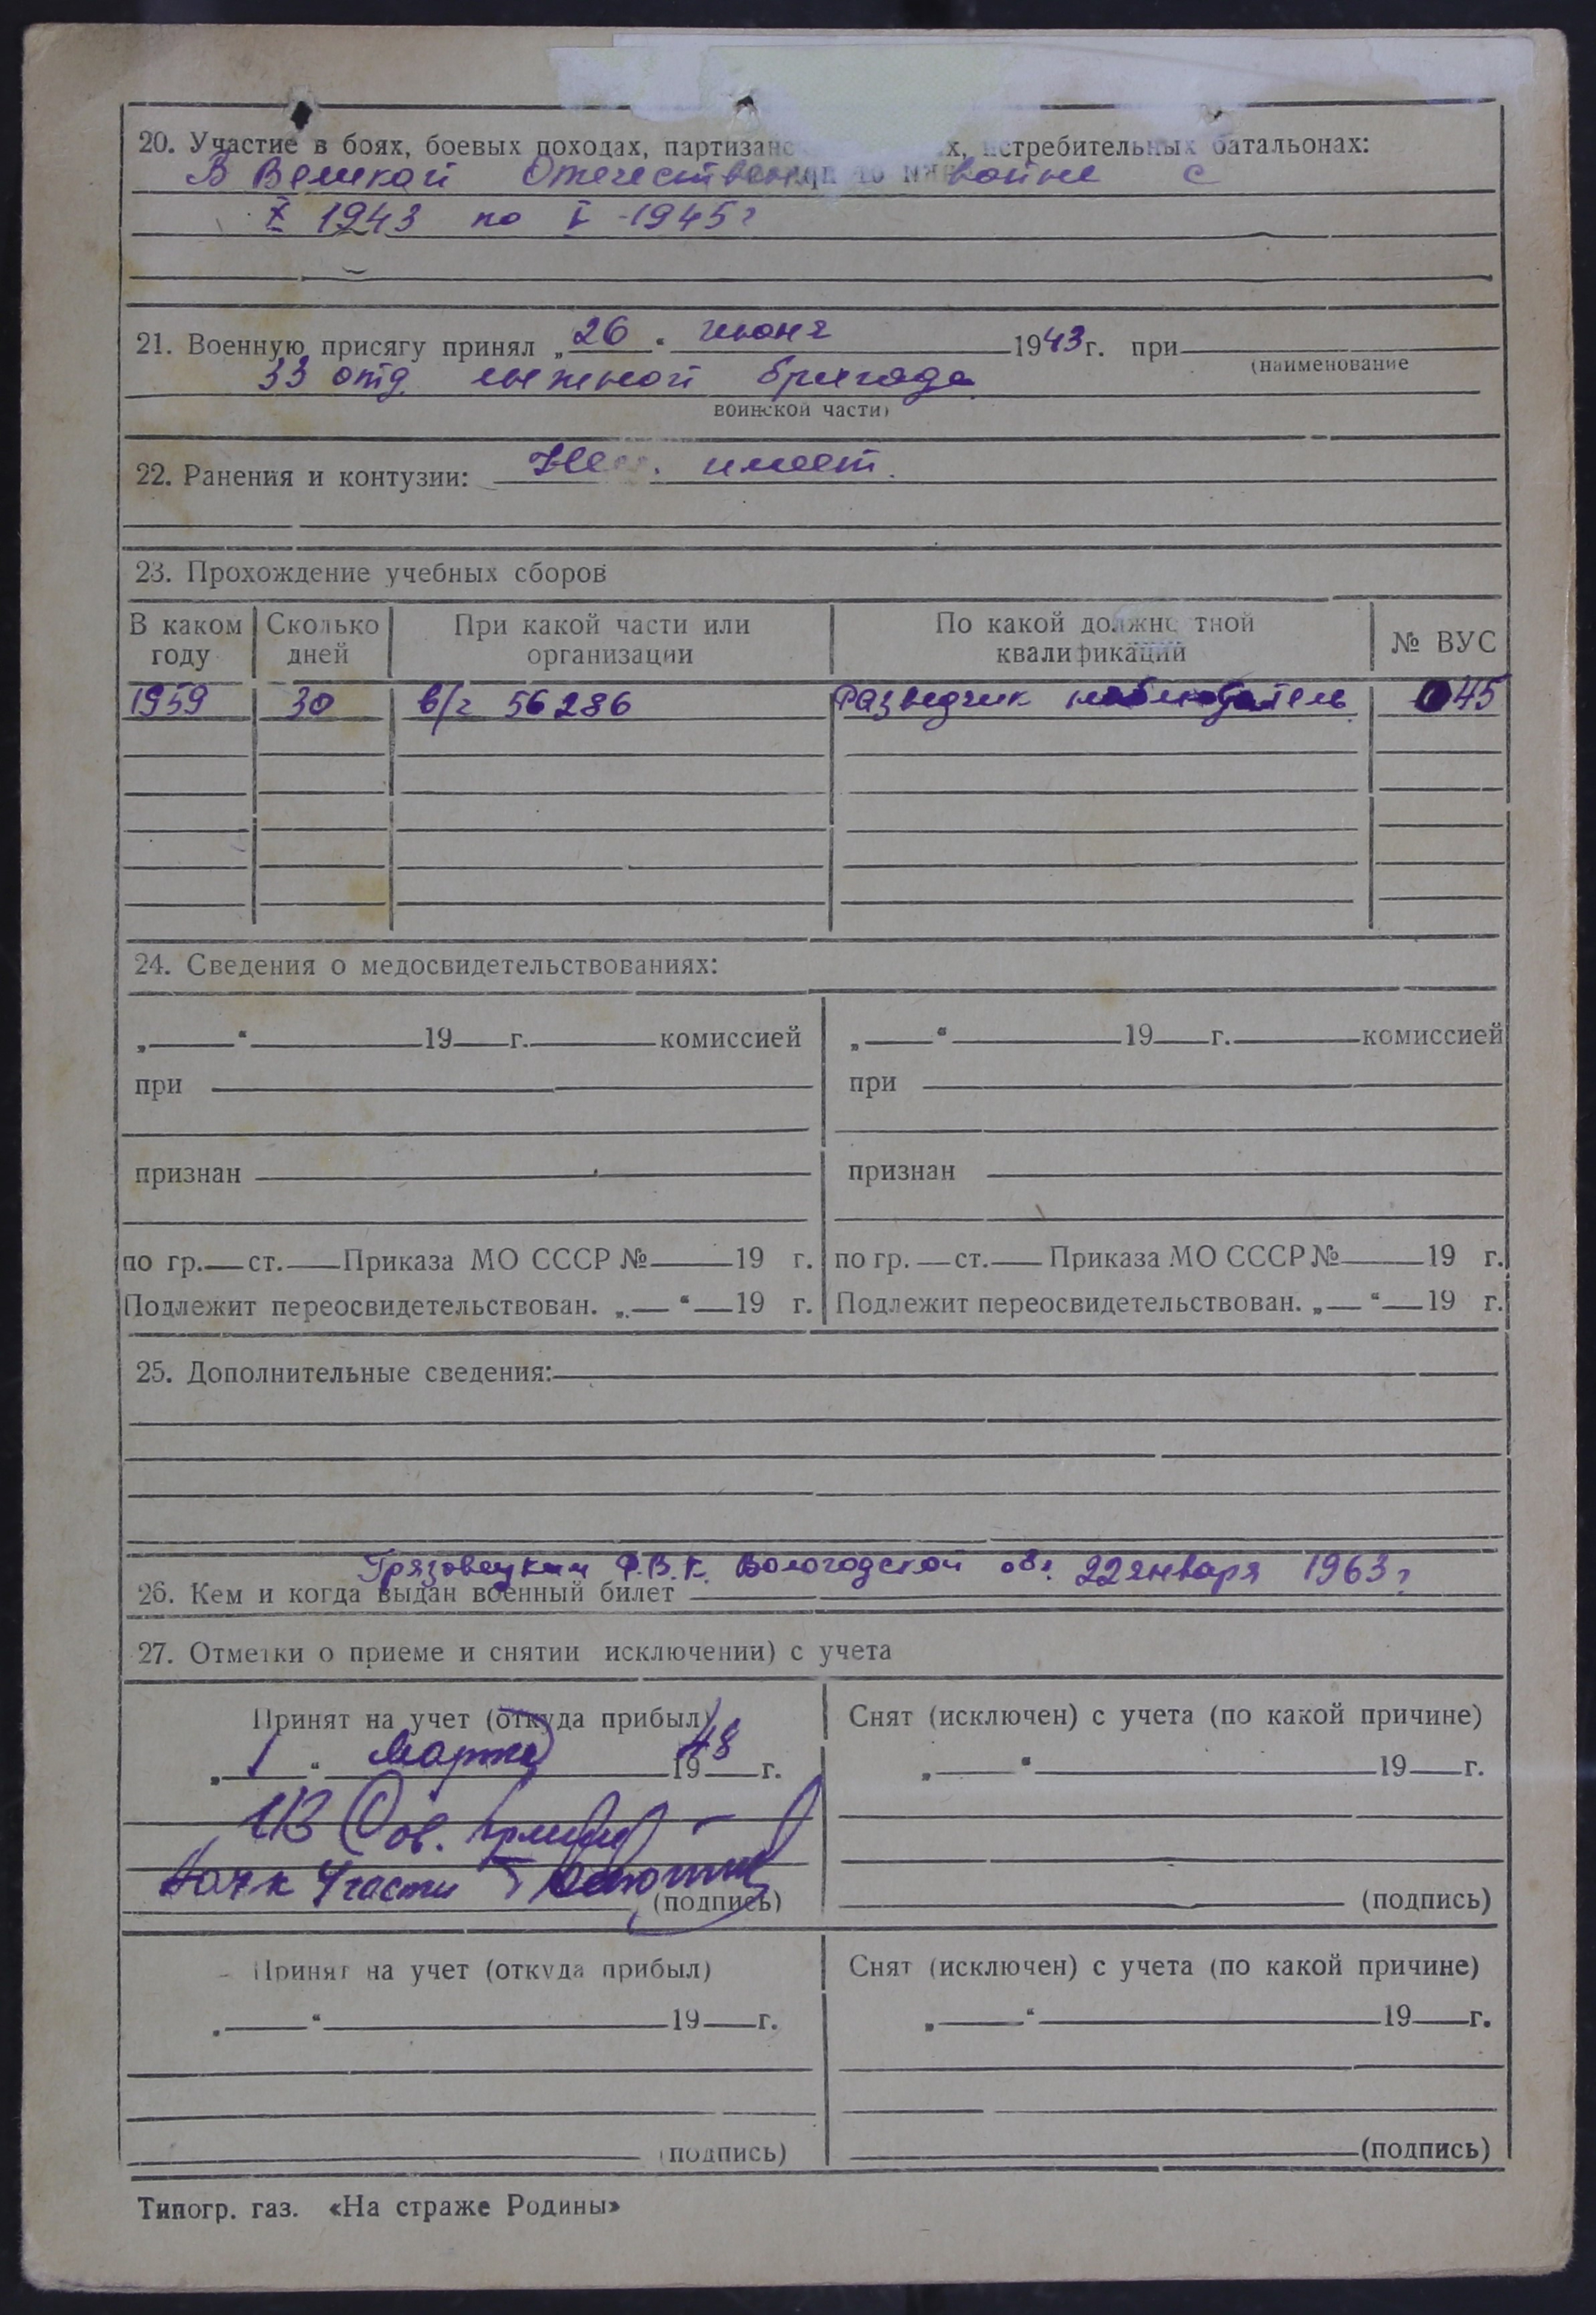 20. Участие в боях, боевых походах, партизанс х, истребительных батальонах:
В Великой Отечествен войне с
X 1943 по V 1945 г
21. Военную присягу принял „26“ июня 1943 г. при
(наименование
33 отд. лыжной бригада
воинской части)
22. Ранения и контузии: имеет.
23. Прохождение учебных сборов
В каком году Сколько дней При какой части или организации По какой должностной квалификаций № ВУС
1959 30 в/ч 56286 Разведчик наблюдатель 45
24. Сведения о медосвидетельствованиях:
„ “ 19 г. комиссией „ “ 19 г. комиссией
при при
признан признан
по гр. ст. Приказа МО СССР № 19 г. по гр. ст. Приказа МО СССР № 19 г.
Подлежит переосвидетельствован. „ “ 19 г. Подлежит переосвидетельствован. „ “ 19 г.
25. Дополнительные сведения:
Грязовецким Р.В.К. Вологодской обл. 22 января 1963 г
26. Кем и когда выдан военный билет
27. Отметки о приеме и снятии исключении) с учета
Принят на учет (откуда прибыл) Снят (исключен) с учета (по какой причине)
„1“ Марта 1948 г. „ “ 19 г.
из Сов. Армии
части
(подпись) (подпись)
Принят на учет (откуда прибыл) Снят (исключен) с учета (по какой причине)
„ “ 19 г. „ “ 19 г.
(подпись) (подпись)
Типогр. газ. «На страже Родины»